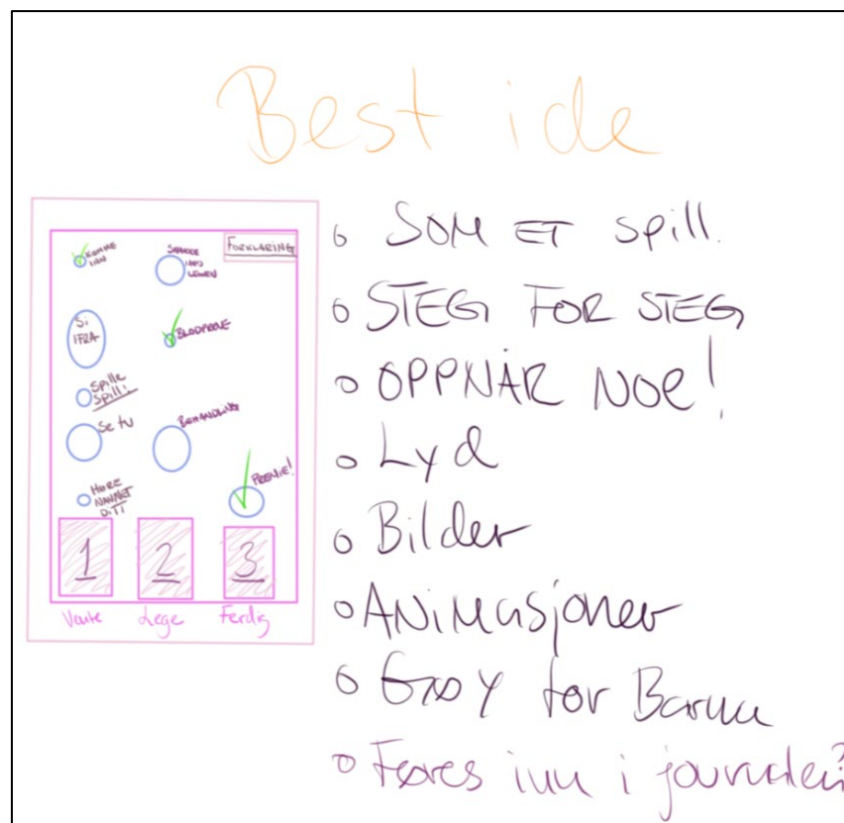 Best ide
KOMME
INN
SNAKKE
MED
LEGEN
FORKLARING
Si
IFRA
BLODPRØVE
Spille
Spill!
Se tv
BEHANDLING
HØRE
NAVNET
DITT
PREMIE!
1
2
3
Vente
Lege
Ferdig
SOM ET Spill.
STEG FOR STEG
OPPNÅR NOE!
Lyd
Bilder
ANiMasjoner
GrøY for Barna
Føres inn i journalen?